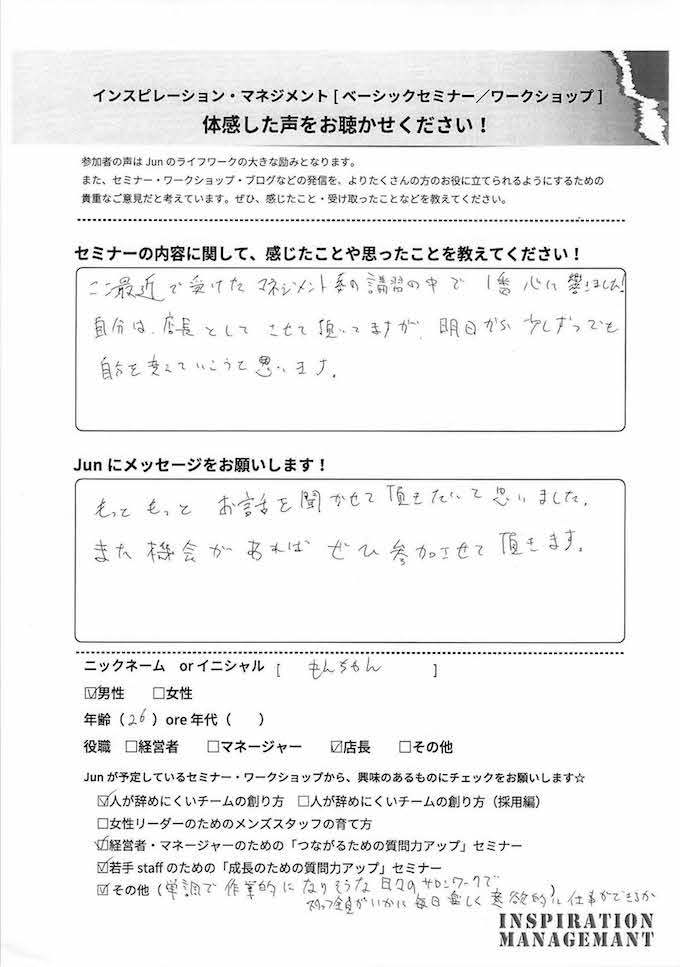 インスピレーション・マネジメント [ ベーシックセミナー／ワークショップ ]
体感した声をお聴かせください！
参加者の声は Jun のライフワークの大きな励みとなります。
また、セミナー・ワークショップ・ブログなどの発信を、よりたくさんの方のお役に立てられるようにするための
貴重なご意見だと考えています。ぜひ、感じたこと・受け取ったことなどを教えてください。
セミナーの内容に関して、感じたことや思ったことを教えてください！
ここ最近で受けたマネジメント系の講習の中で 1番 心に 響きました!
自分は、店長として させて頂いてますが、明日から 少しずつでも
自分を変えていこうと思います。
Jun にメッセージをお願いします！
もっと もっと お話を聞かせて頂きたいて思いました。
また機会があれば ぜひ参加させて頂きます。
ニックネーム　or イニシャル [ もんちゃん ]
☑男性 □女性
年齢（26）ore 年代（　　）
役職 □経営者 □マネージャー ☑店長 □その他
Jun が予定しているセミナー・ワークショップから、興味のあるものにチェックをお願いします☆
☑人が辞めにくいチームの創り方 □人が辞めにくいチームの創り方（採用編）
□女性リーダーのためのメンズスタッフの育て方
☑経営者・マネージャーのための「つながるための質問力アップ」セミナー
☑若手 staff のための「成長のための質問力アップ」セミナー
☑その他（単調で作業的になりそうな日々のサロンワークで
スタッフ全員がいかに毎日楽しく意欲的に仕事ができるか
INSPIRATION
MANAGEMANT